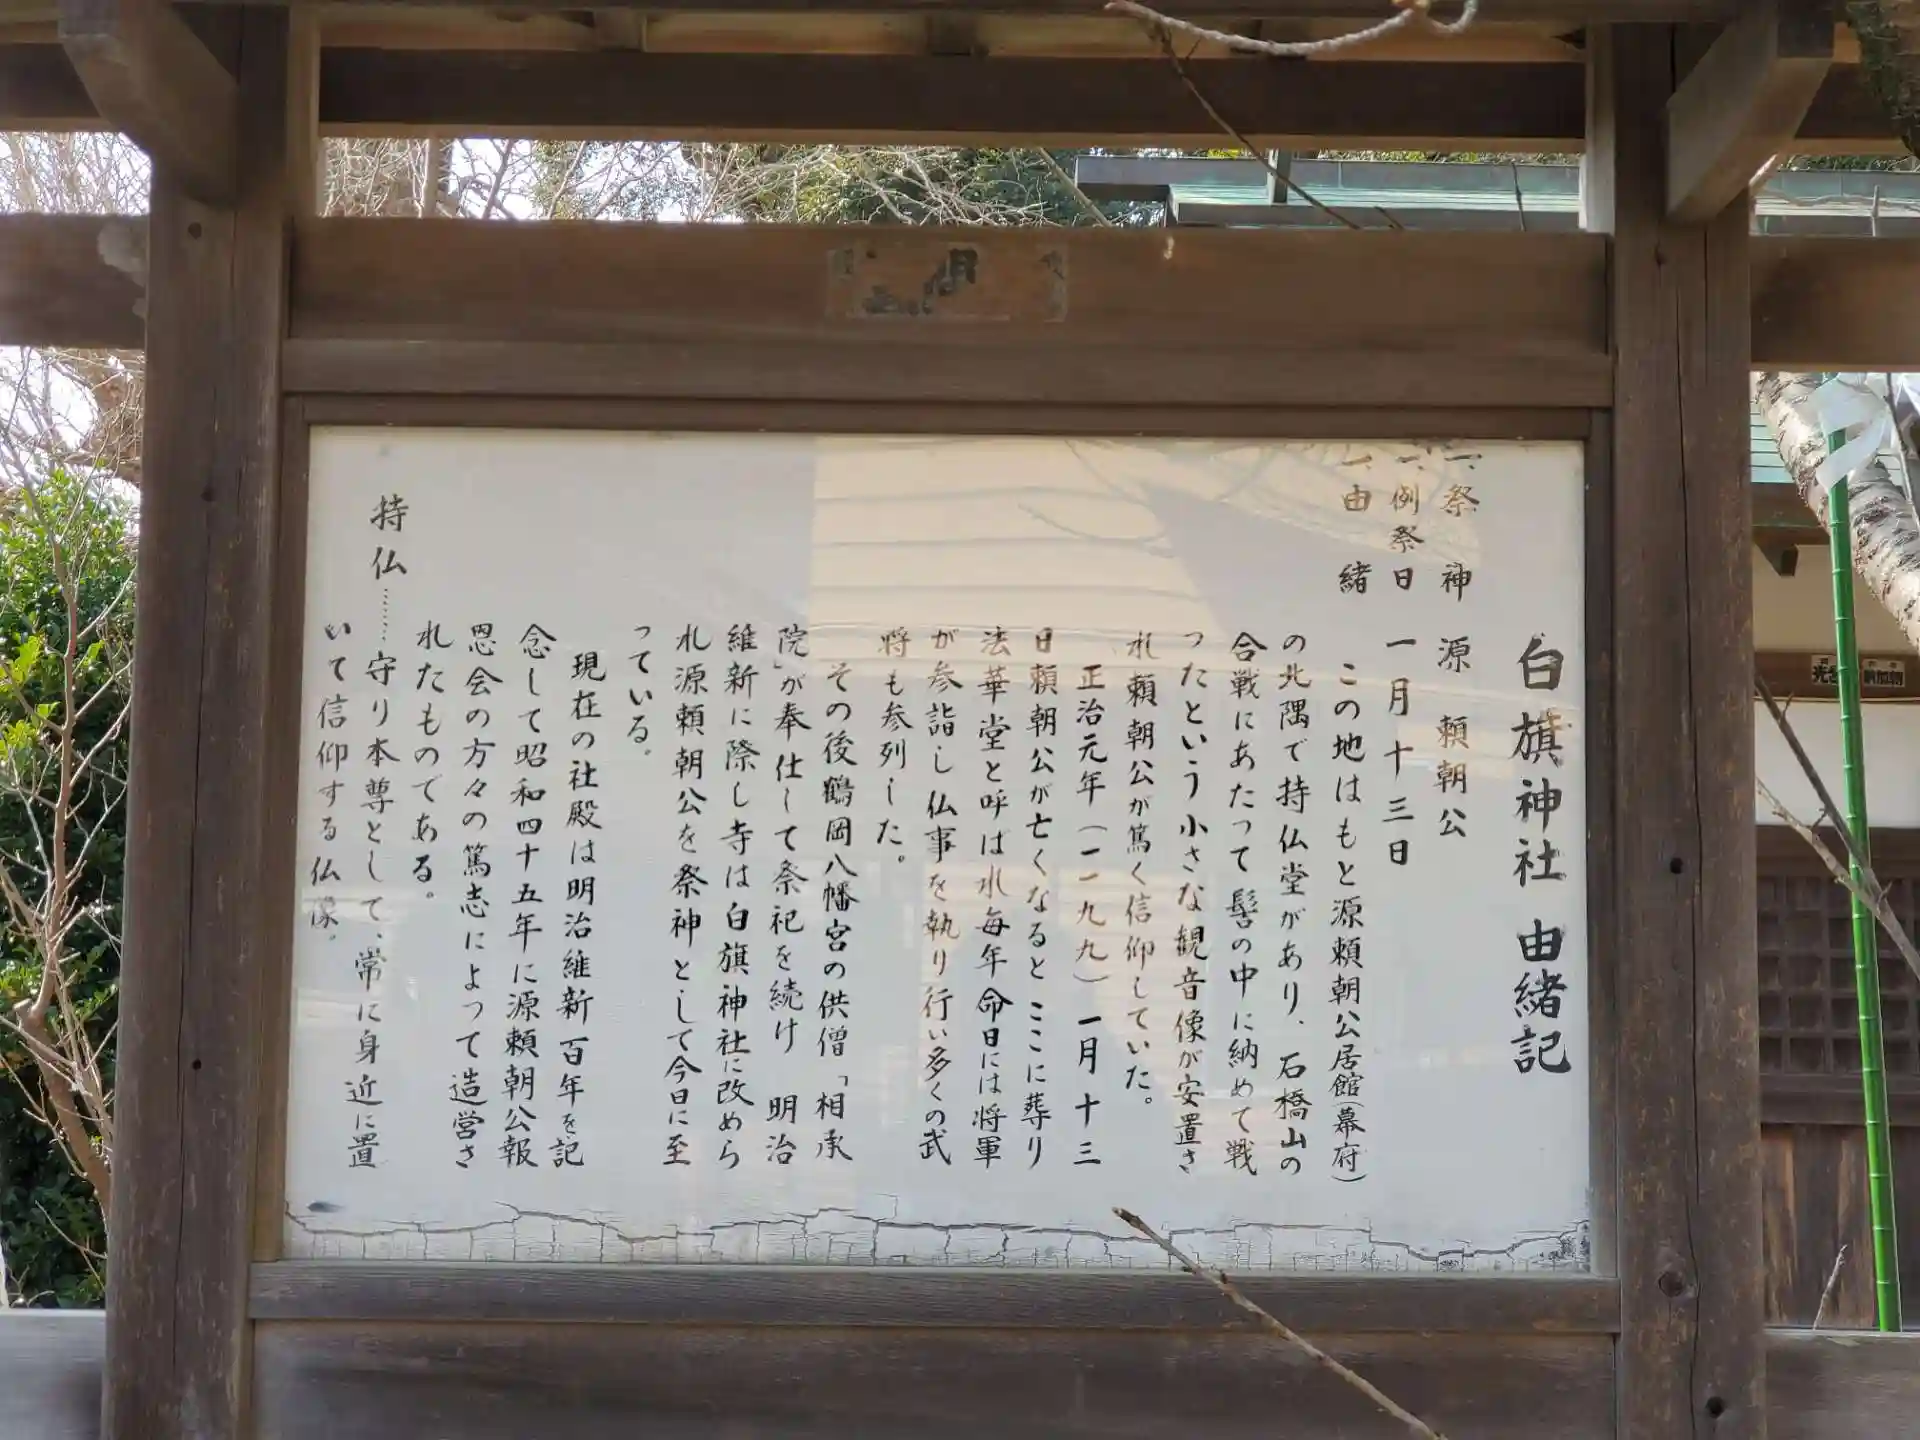 白旗神社 由緒記
一、祭神 源 頼朝公
一、例祭日 一月十三日
一、由緒
この地はもと源頼朝公居館(幕府)
の北隅で持仏堂があり、石橋山の
合戦にあたって髻の中に納めて戦
ったという小さな観音像が安置さ
れ頼朝公が篤く信仰していた。
正治元年(一一九九)一月十三
日頼朝公が亡くなるとここに葬り
法華堂と呼ばれ毎年命日には将軍
が参詣し仏事を執り行い多くの武
将も参列した。
その後鶴岡八幡宮の供僧「相承
院」が奉仕して祭祀を続け 明治
維新に際し寺は白旗神社に改めら
れ源頼朝公を祭神として今日に至
っている。
現在の社殿は明治維新百年を記
念して昭和四十五年に源頼朝公報
恩会の方々の篤志によって造営さ
れたものである。
持仏……守り本尊として、常に身近に置
いて信仰する仏像。